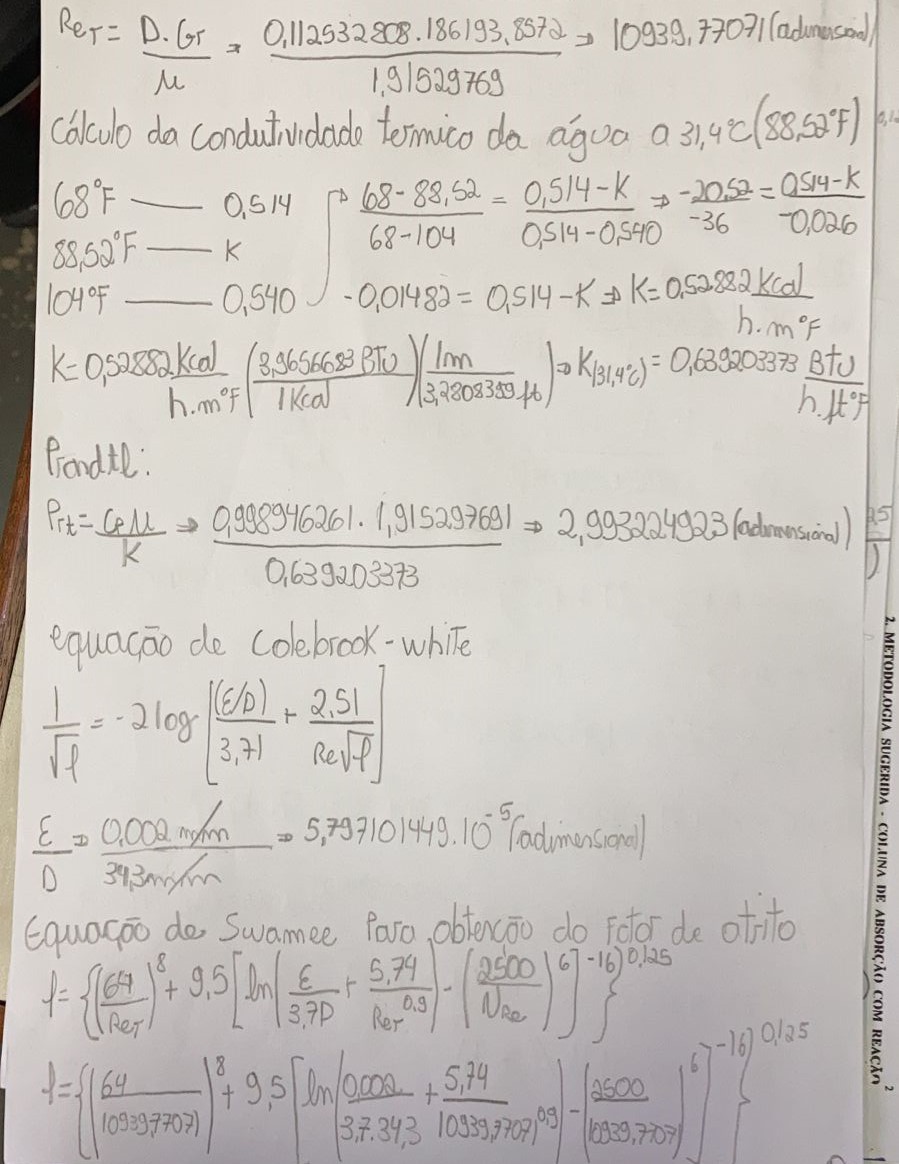 Re_T = D.Gr/μ ⇒ 0,112532808.186193,8572/1,91529769 ⇒ 10939,77071 (adimensional)
Cálculo da condutividade termico da água a 31,4°C (88,52°F)
68°F — 0,514 → 68-88,52/68-104 = 0,514-K/0,514-0,540 ⇒ -20,52/-36 = 0,514-K/-0,026
88,52°F — K
104°F — 0,540 -0,01482 = 0,514-K ⇒ K=0,52882 Kcal/h.m°F
K=0,52882 Kcal/h.m°F (3,9656683 BTU/1Kcal)(1m/3,2808399 ft) ⇒ K(31,4°C) = 0,639203373 BTU/h.ft°F
Prandtl:
Prt = Cp.μ/K ⇒ 0,998946261.1,915297691/0,639203373 ⇒ 2,993224923 (adimensional)
equação de Colebrook-white
1/√f = -2log[(ε/D)/3,71 + 2,51/Re√f]
ε/D ⇒ 0,002 mm/34,3mm ⇒ 5,797101449.10^-5 (adimensional)
Equação de Swamee Para obtenção do Fator de atrito
f={(64/Re_T)^8 + 9,5[ln(ε/3,7D + 5,74/Re_T^0,9) - (2500/N_Re)^6]^-16}^0,125
f={(64/10939,7707)^8 + 9,5[ln(0,002/3,7.34,3 + 5,74/10939,7707^0,9) - (2500/10939,7707)^6]^-16}^0,125
2. METODOLOGIA SUGERIDA - COLUNA DE ABSORÇÃO COM REAÇÃO
2